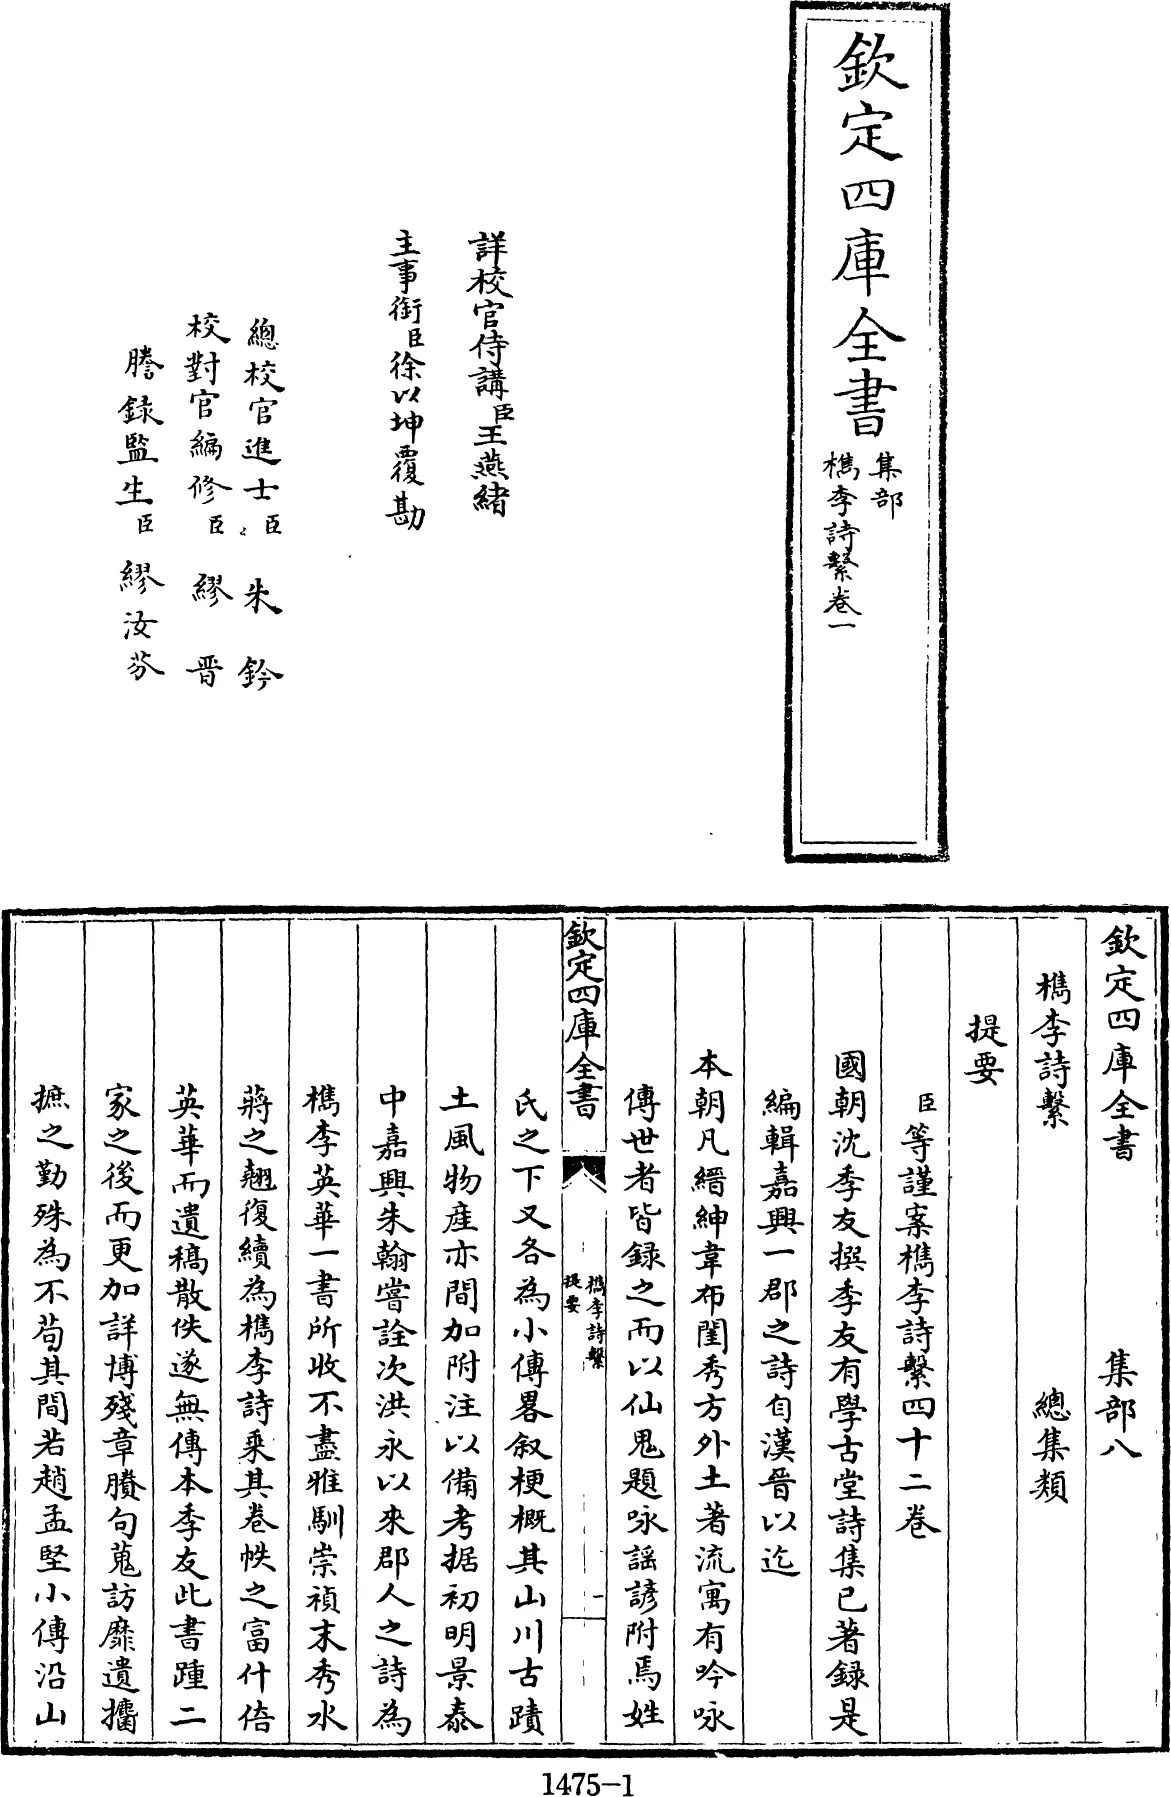 欽定四庫全書
集部
檇李詩繫卷一
詳校官侍講臣王燕緒
主事銜臣徐以坤覆勘
總校官進士臣朱鈐
校對官編修臣繆晋
謄錄監生臣繆汝芬
欽定四庫全書 集部八
檇李詩繫 總集類
提要
臣等謹案檇李詩繫四十二卷
國朝沈季友撰季友有學古堂詩集已著録是
編輯嘉興一郡之詩自漢晉以迄
本朝凡縉紳韋布閨秀方外土著流寓有吟咏
傳世者皆録之而以仙鬼題咏謡諺附焉姓
欽定四庫全書
檇李詩繫
提要
一
氏之下又各為小傳畧叙梗概其山川古蹟
土風物産亦間加附注以備考据初明景泰
中嘉興朱翰嘗詮次洪永以來郡人之詩為
檇李英華一書所收不盡雅馴崇禎末秀水
蔣之翹復續為檇李詩乘其卷帙之富什倍
英華而遺稿散佚遂無傳本季友此書踵二
家之後而更加詳博殘章賸句蒐訪靡遺攟
摭之勤殊為不茍其間若趙孟堅小傳沿山
1475-1